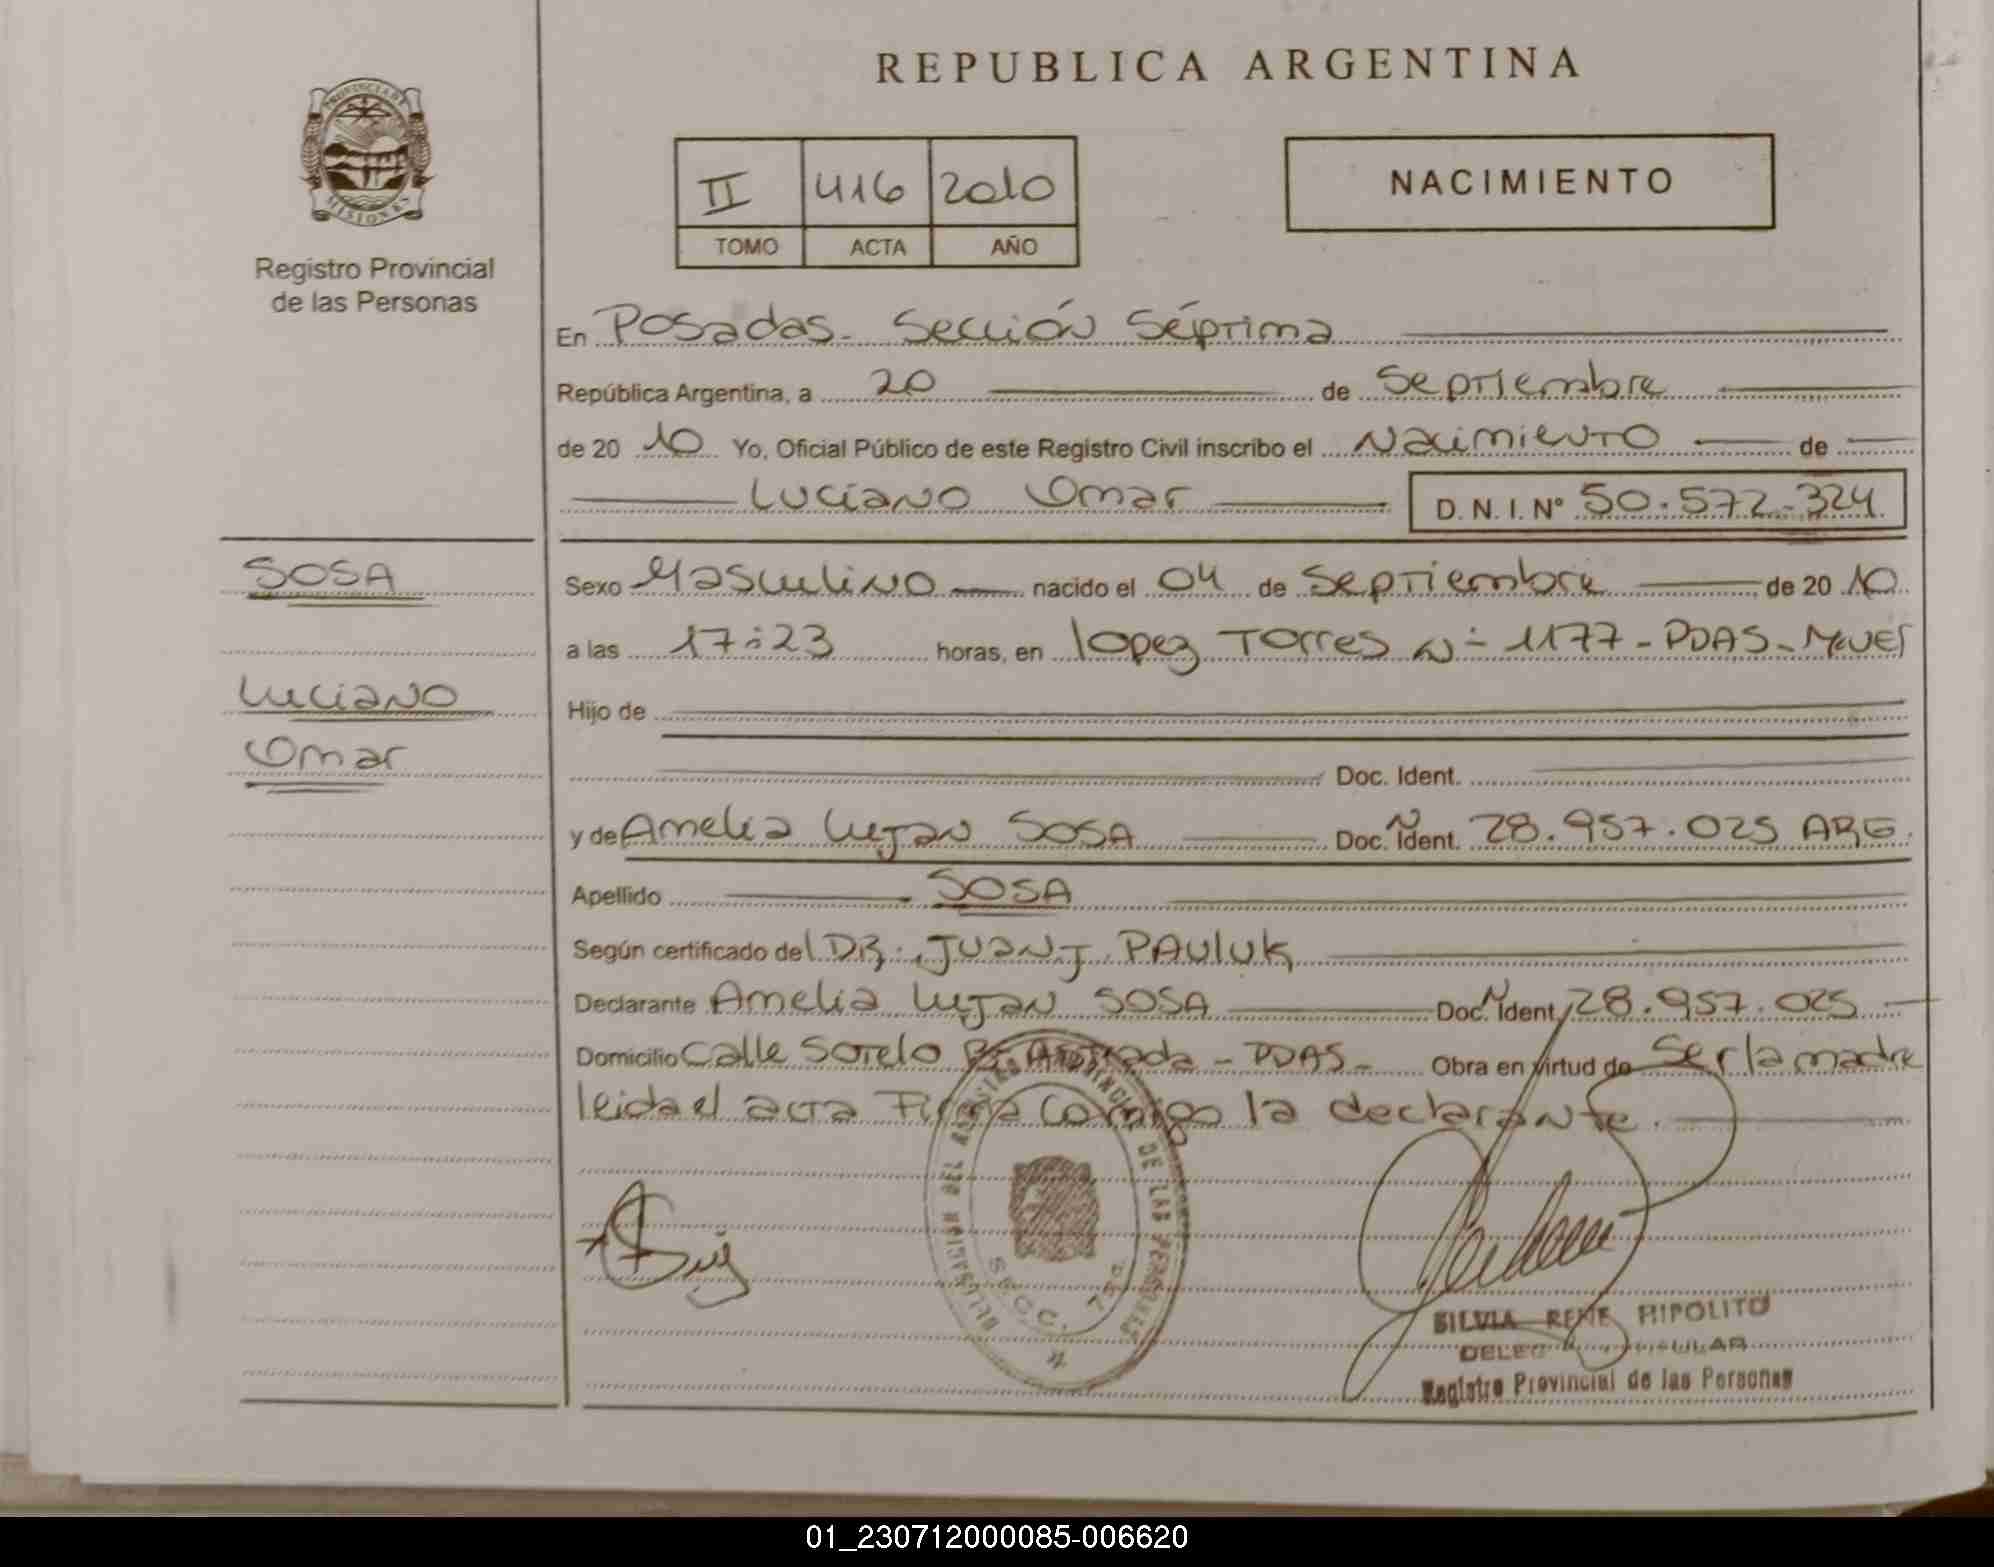 REPUBLICA ARGENTINA
PROVINCIA DE
MISIONES
Registro Provincial
de las Personas
II 416 2010
TOMO ACTA AÑO
NACIMIENTO
En Posadas - Sección Séptima
República Argentina, a 20 de Septiembre
de 20 10 Yo, Oficial Público de este Registro Civil inscribo el Nacimiento de
Luciano Omar D.N.I. Nº 50.572.324
SOSA
Luciano
Omar
Sexo Masculino nacido el 04 de Septiembre de 20 10
a las 17:23 horas, en lopez Torres Nº 1177 - PDAS -
Hijo de
Doc. Ident.
y de Amelia Lujan SOSA Doc. N Ident. 28.957.025 ARG.
Apellido SOSA
Según certificado del DR. JUAN J. PAULUK
Declarante Amelia Lujan SOSA Doc. N Ident. 28.957.025
Domicilio Calle Sotelo - PDAS - Obra en virtud de Ser la madre
leida el acta Firma conmigo la declarante.
SILVIA RENE HIPOLITO
Registro Provincial de las Personas
01_230712000085-006620